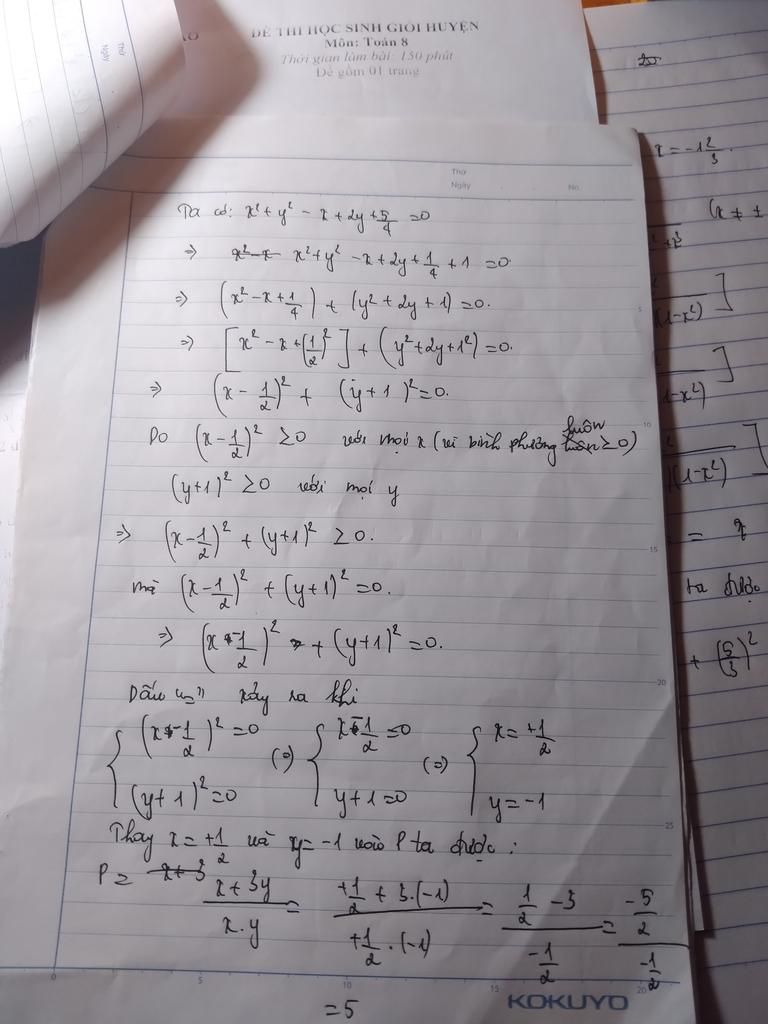 ĐỀ THI HỌC SINH GIỎI HUYỆN
Môn: Toán 8
Thời gian làm bài: 150 phút
Đề gồm 01 trang
Thứ
Ngày
Thứ
Ngày
No.
Ta có: x² + y² - x + 2y + 5/4 = 0
=> x² - x x² + y² - x + 2y + 1/4 + 1 = 0
=> (x² - x + 1/4) + (y² + 2y + 1) = 0.
=> [x² - x + (1/2)²] + (y² + 2y + 1²) = 0.
=> (x - 1/2)² + (y + 1)² = 0.
Do (x - 1/2)² ≥ 0 với mọi x (vì bình phương luôn luôn ≥ 0)
(y+1)² ≥ 0 với mọi y
=> (x - 1/2)² + (y+1)² ≥ 0.
mà (x - 1/2)² + (y+1)² = 0.
=> (x - 1/2)² + (y+1)² = 0.
Dấu "=" xảy ra khi
{ (x - 1/2)² = 0 (=) { x - 1/2 = 0 (=) { x = +1/2
(y+1)² = 0 y + 1 = 0 y = -1
Thay x = +1/2 và y = -1 vào P ta được:
P = x + 3 (x + 3y)/(x.y) = (+1/2 + 3.(-1))/(+1/2 . (-1)) = (1/2 - 3)/(-1/2) = (-5/2)/(-1/2)
= 5
KOKUYO
0 5 10 15 20
5
10
15
20
25
20
x = -1 2/3.
(x ≠ ±
(1-x²) ]
1-x²) ]
)(1-x²) ]
= x
ta được
+ (5/3)²